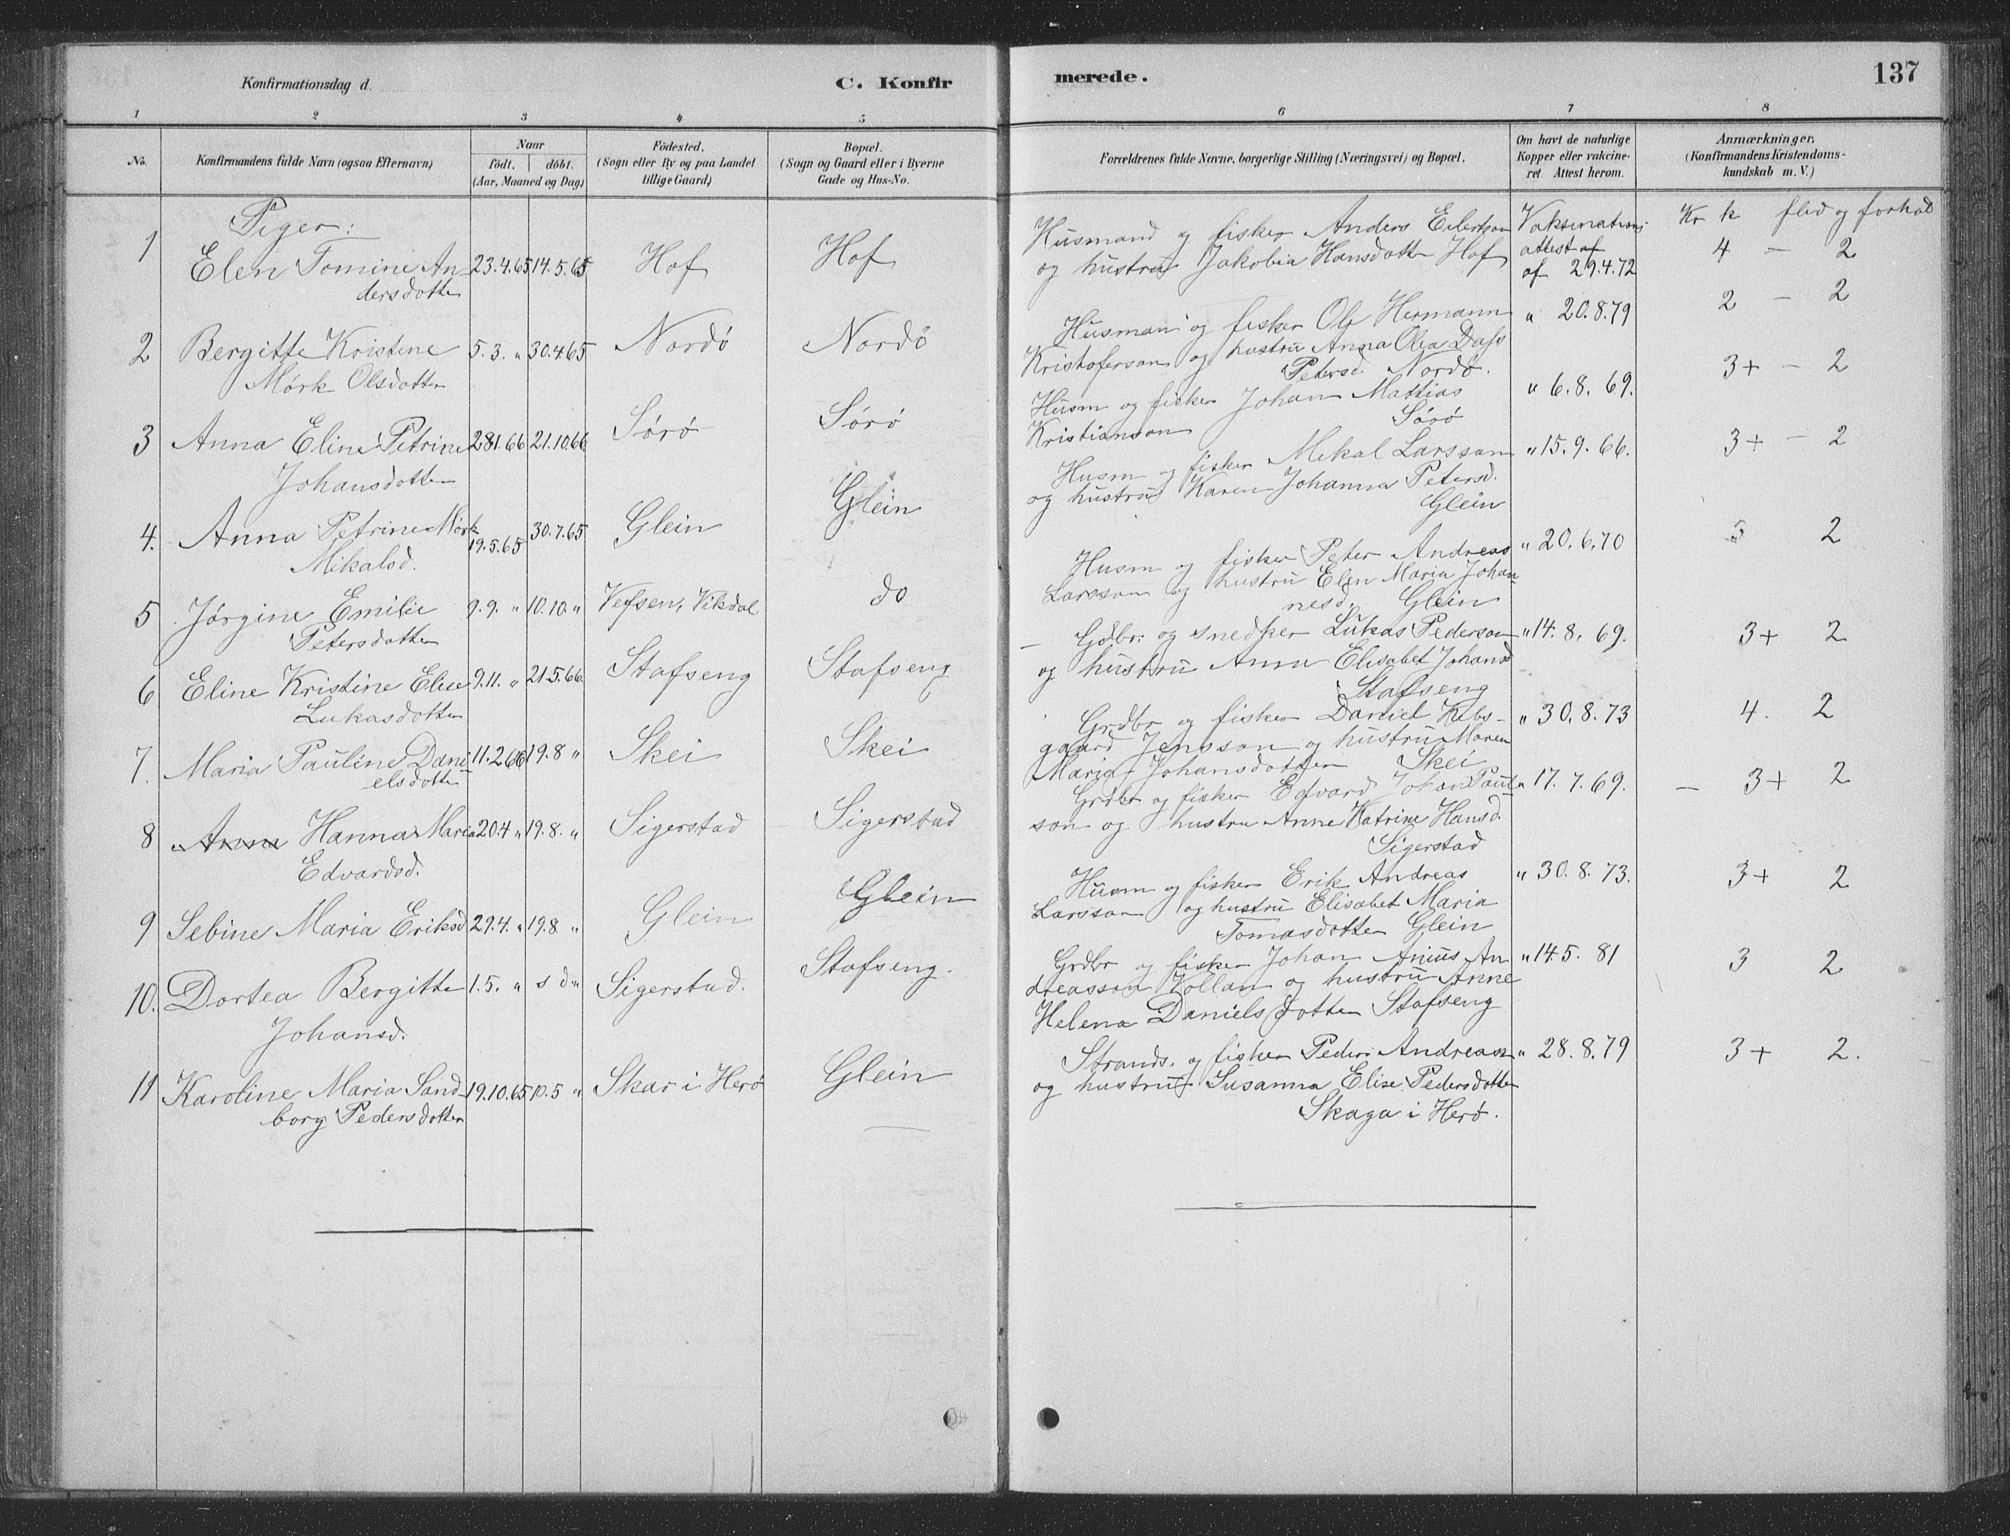 Konfirmationsdag d.
C. Konfir
merede.
137
1 2 3 4 5 6 7 8
No.
Konfirmandens fulde Navn (ogsaa Efternavn)
Naar
födt. döbt.
(Aar, Maaned og Dag)
Födested.
(Sogn eller By og paa Landet
tillige Gaard)
Bopæl.
(Sogn og Gaard eller i Byerne
Gade og Hus-No.
Forældrenes fulde Navne, borgerlige Stilling (Næringsvei) og Bopæl.
Om havt de naturlige
Kopper eller vakcine-
ret Attest herom.
Anmærkninger.
(Konfirmandens Kristendoms-
kundskab m. V.)
Piger:
Kr k flid og forhold
1 Elen Tomine An 23.4.65 14.5.65 Hof Hof
dersdotter
Husmand og fisker Anders Eilertson
og hustru Jakobia Hansdotter Hof
Vaksinations
attest af
af 29.4.72
4 - 2
2 Bergitte Kristine 5.3. " 30.4.65 Nordö Nordö
Mørk Olsdotter
Husman og fisker Ole Hermann
Kristoferson og hustru Anna Olea Dass
Petersd. Nordö.
" 20.8.79
2 - 2
3 Anna Eline Petrine 28.1.66 21.10.66 Sörö Sörö
Johansdotter
Husm og fisker Johan Mattias
Kristianson Sörö
" 6.8.69.
3+ - 2
4. Anna Petrine Mørk 19.5.65 30.7.65 Glein Glein
Mikalsd.
Husm og fisker Mikal Larsson
og hustru Karen Johanna Petersd.
Glein
" 15.9.66.
3+ - 2
5 Jørgine Emilie 9.9. " 10.10. " Vefsen, Vikdal do
Petersdotter
Husm og fisker Peter Andreas
Larsson og hustru Elen Maria Johan
nesd. Glein
" 20.6.70
3 2
6 Eline Kristine Elise 9.11. " 21.5.66 Stafseng Stafseng
Lukasdotter
- Gdbr. og snedker Lukas Pederson
og hustru Anna Elisabet Johansd
Stafseng
" 14.8.69.
3+ 2
7. Maria Pauline Dani 11.2.66 19.8 " Skei Skei
elsdotter
Grdbr og fisker Daniel Kobs-
gaard Jensson og hustru Maren
Maria Johansdotter Skei
" 30.8.73
4. 2
8 Anna Hanna Maria 20.4 " 19.8. " Sigerstad Sigerstad
Edvardsd.
Grdbr og fisker Edvard Johan Paul
son og hustru Anne Katrine Hansd.
Sigerstad
" 17.7.69.
- 3+ 2
9 Sebine Maria Eriksd 29.4. " 19.8 " Glein Glein
Husm og fisker Erik Andreas
Larsson og hustru Elisabet Maria
Tomasdotter Glein
" 30.8.73.
3+ 2
10. Dortea Bergitte 1.5. " s d " Sigerstad. Stafseng.
Johansd.
Grdbr og fisker Johan Anius An
dreasson Kollan og hustru Anne
Helena Danielsdotter Stafseng
" 14.5.81
3 2
11 Karoline Maria Sand 19.10.65 10.5 " Skar i Herö Glein
borg Pedersdotter
Strands. og fisker Peder Andreasn
og hustru Susanna Elise Pedersdotter
Skaga i Herö.
" 28.8.79
3+ 2.